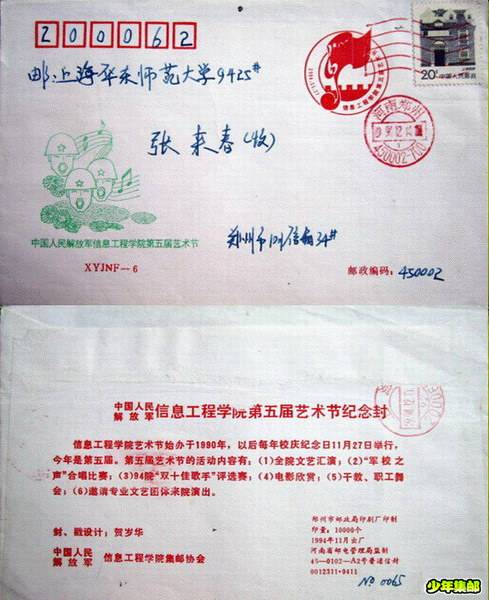 200062
20分 中国人民邮政
邮:上海华东师范大学9425#
信息工程学院第五届艺术节
1994.11.27
河南郑州
450002-7
张来春(收)
中国人民解放军信息工程学院第五届艺术节
XYJNF—6
邮政编码:450002
中国人民解放军 信息工程学院第五届艺术节纪念封
信息工程学院艺术节始办于1990年,以后每年校庆纪念日11月27日举行,
今年是第五届。第五届艺术节的活动内容有:(1)全院文艺汇演;(2)“军校之
声”合唱比赛;(3)94院“双十佳歌手”评选赛;(4)电影欣赏;(5)干教、职工舞
会;(6)邀请专业文艺团体来院演出。
封、戳设计:贺岁华
中国人民解放军 信息工程学院集邮协会
郑州市邮政局印刷厂印制
印量:10000个
1994年11月出厂
河南省邮电管理局监制
45—0102—A2号普通信封
0012311·9411
No 0065
少年集邮